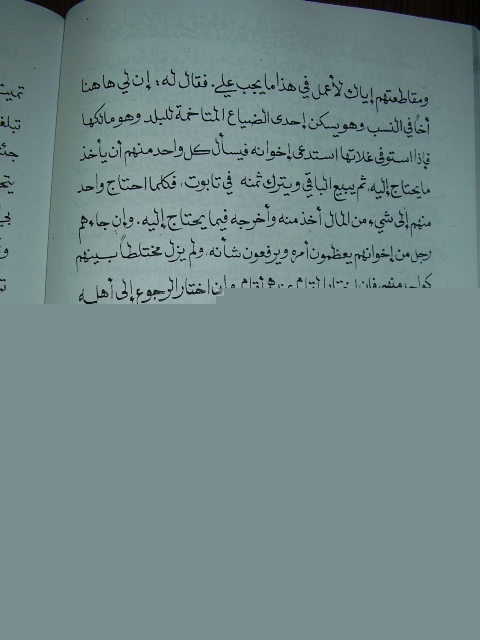 ومقاطعتهم إياك لأعمل في هذا ما يجب علي. فقال له: إن لي هاهنا
أخاً في النسب وهو يسكن إحدى الضياع المتاخمة للبلد وهو مالكها
فإذا استوفى غلاتها استدعى إخوانه فيسأل كل واحد منهم أن يأخذ
ما يحتاج إليه، ثم يبيع الباقي ويترك ثمنه في تابوت، فكلما احتاج واحد
منهم إلى شيء من المال أخذ منه وأخرجه فيما يحتاج إليه. وإن جاءهم
رجل من إخوانهم يعظمون أمره ويرفعون شأنه، ولم يزل مختلطاً بينهم
كواحد منهم فإن اختار المقام عندهم أقام وإن اختار الرجوع إلى أهله